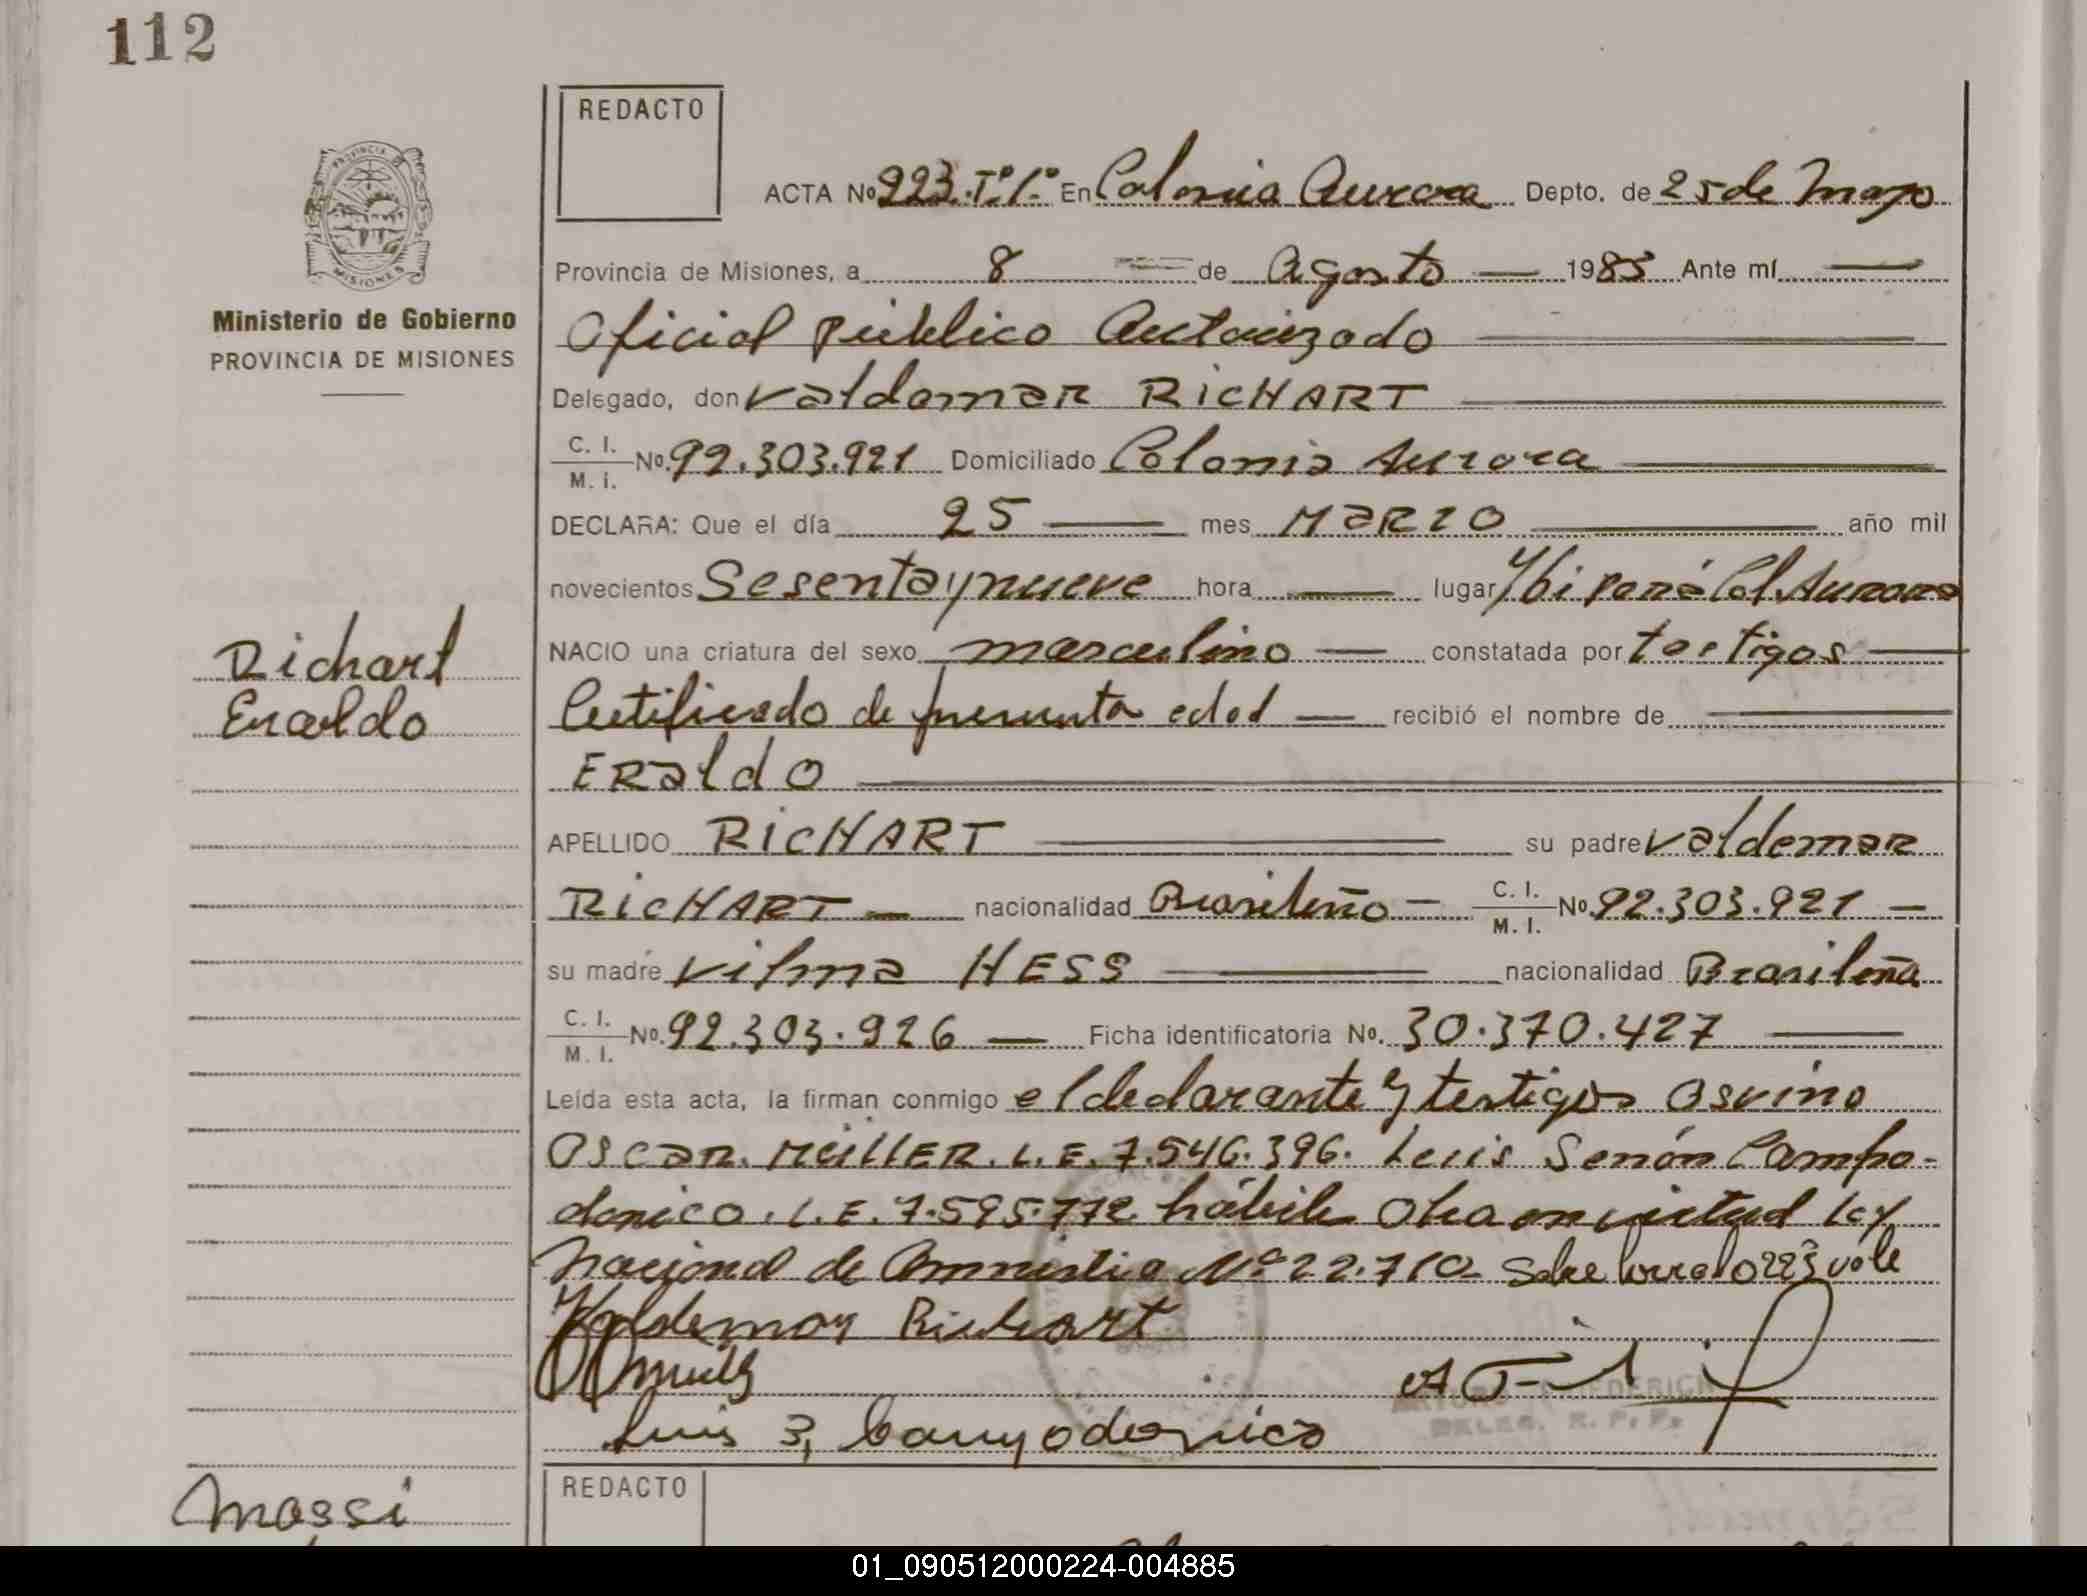 112
REDACTO
ACTA Nº 223. Tº 1º En Colonia Aurora Depto. de 25 de Mayo
PROVINCIA MISIONES
Provincia de Misiones, a 8 de Agosto 1985 Ante mí
Ministerio de Gobierno
PROVINCIA DE MISIONES
Oficial Público Autorizado
Delegado, don Valdemar RICHART
C. I. M. I. Nº 92.303.921 Domiciliado Colonia Aurora
DECLARA: Que el día 25 mes MARZO año mil
novecientos Sesenta y nueve hora lugar Col Aurora
NACIO una criatura del sexo masculino constatada por testigos
Richart
Eraldo
Certificado de presunta edad recibió el nombre de
ERaldo
APELLIDO RICHART su padre Valdemar
RICHART nacionalidad Brasileño C. I. M. I. Nº 92.303.921
su madre Vilma HESS nacionalidad Brasileña
C. I. M. I. Nº 92.303.926 Ficha identificatoria Nº. 30.370.427
Leída esta acta, la firman conmigo el declarante y testigos Osvino
Oscar MüllER. L.E. 7.546.396. Luis Senón Campo-
donico. L.E. 7.595.772 hábiles en virtud ley
Nacional de Amnistia Nº 22.710 Sobre borrado 223 vale
Valdemar Richart
Luis Campodonico
DELEG. R. P. P.
Mossi
REDACTO
01_090512000224-004885